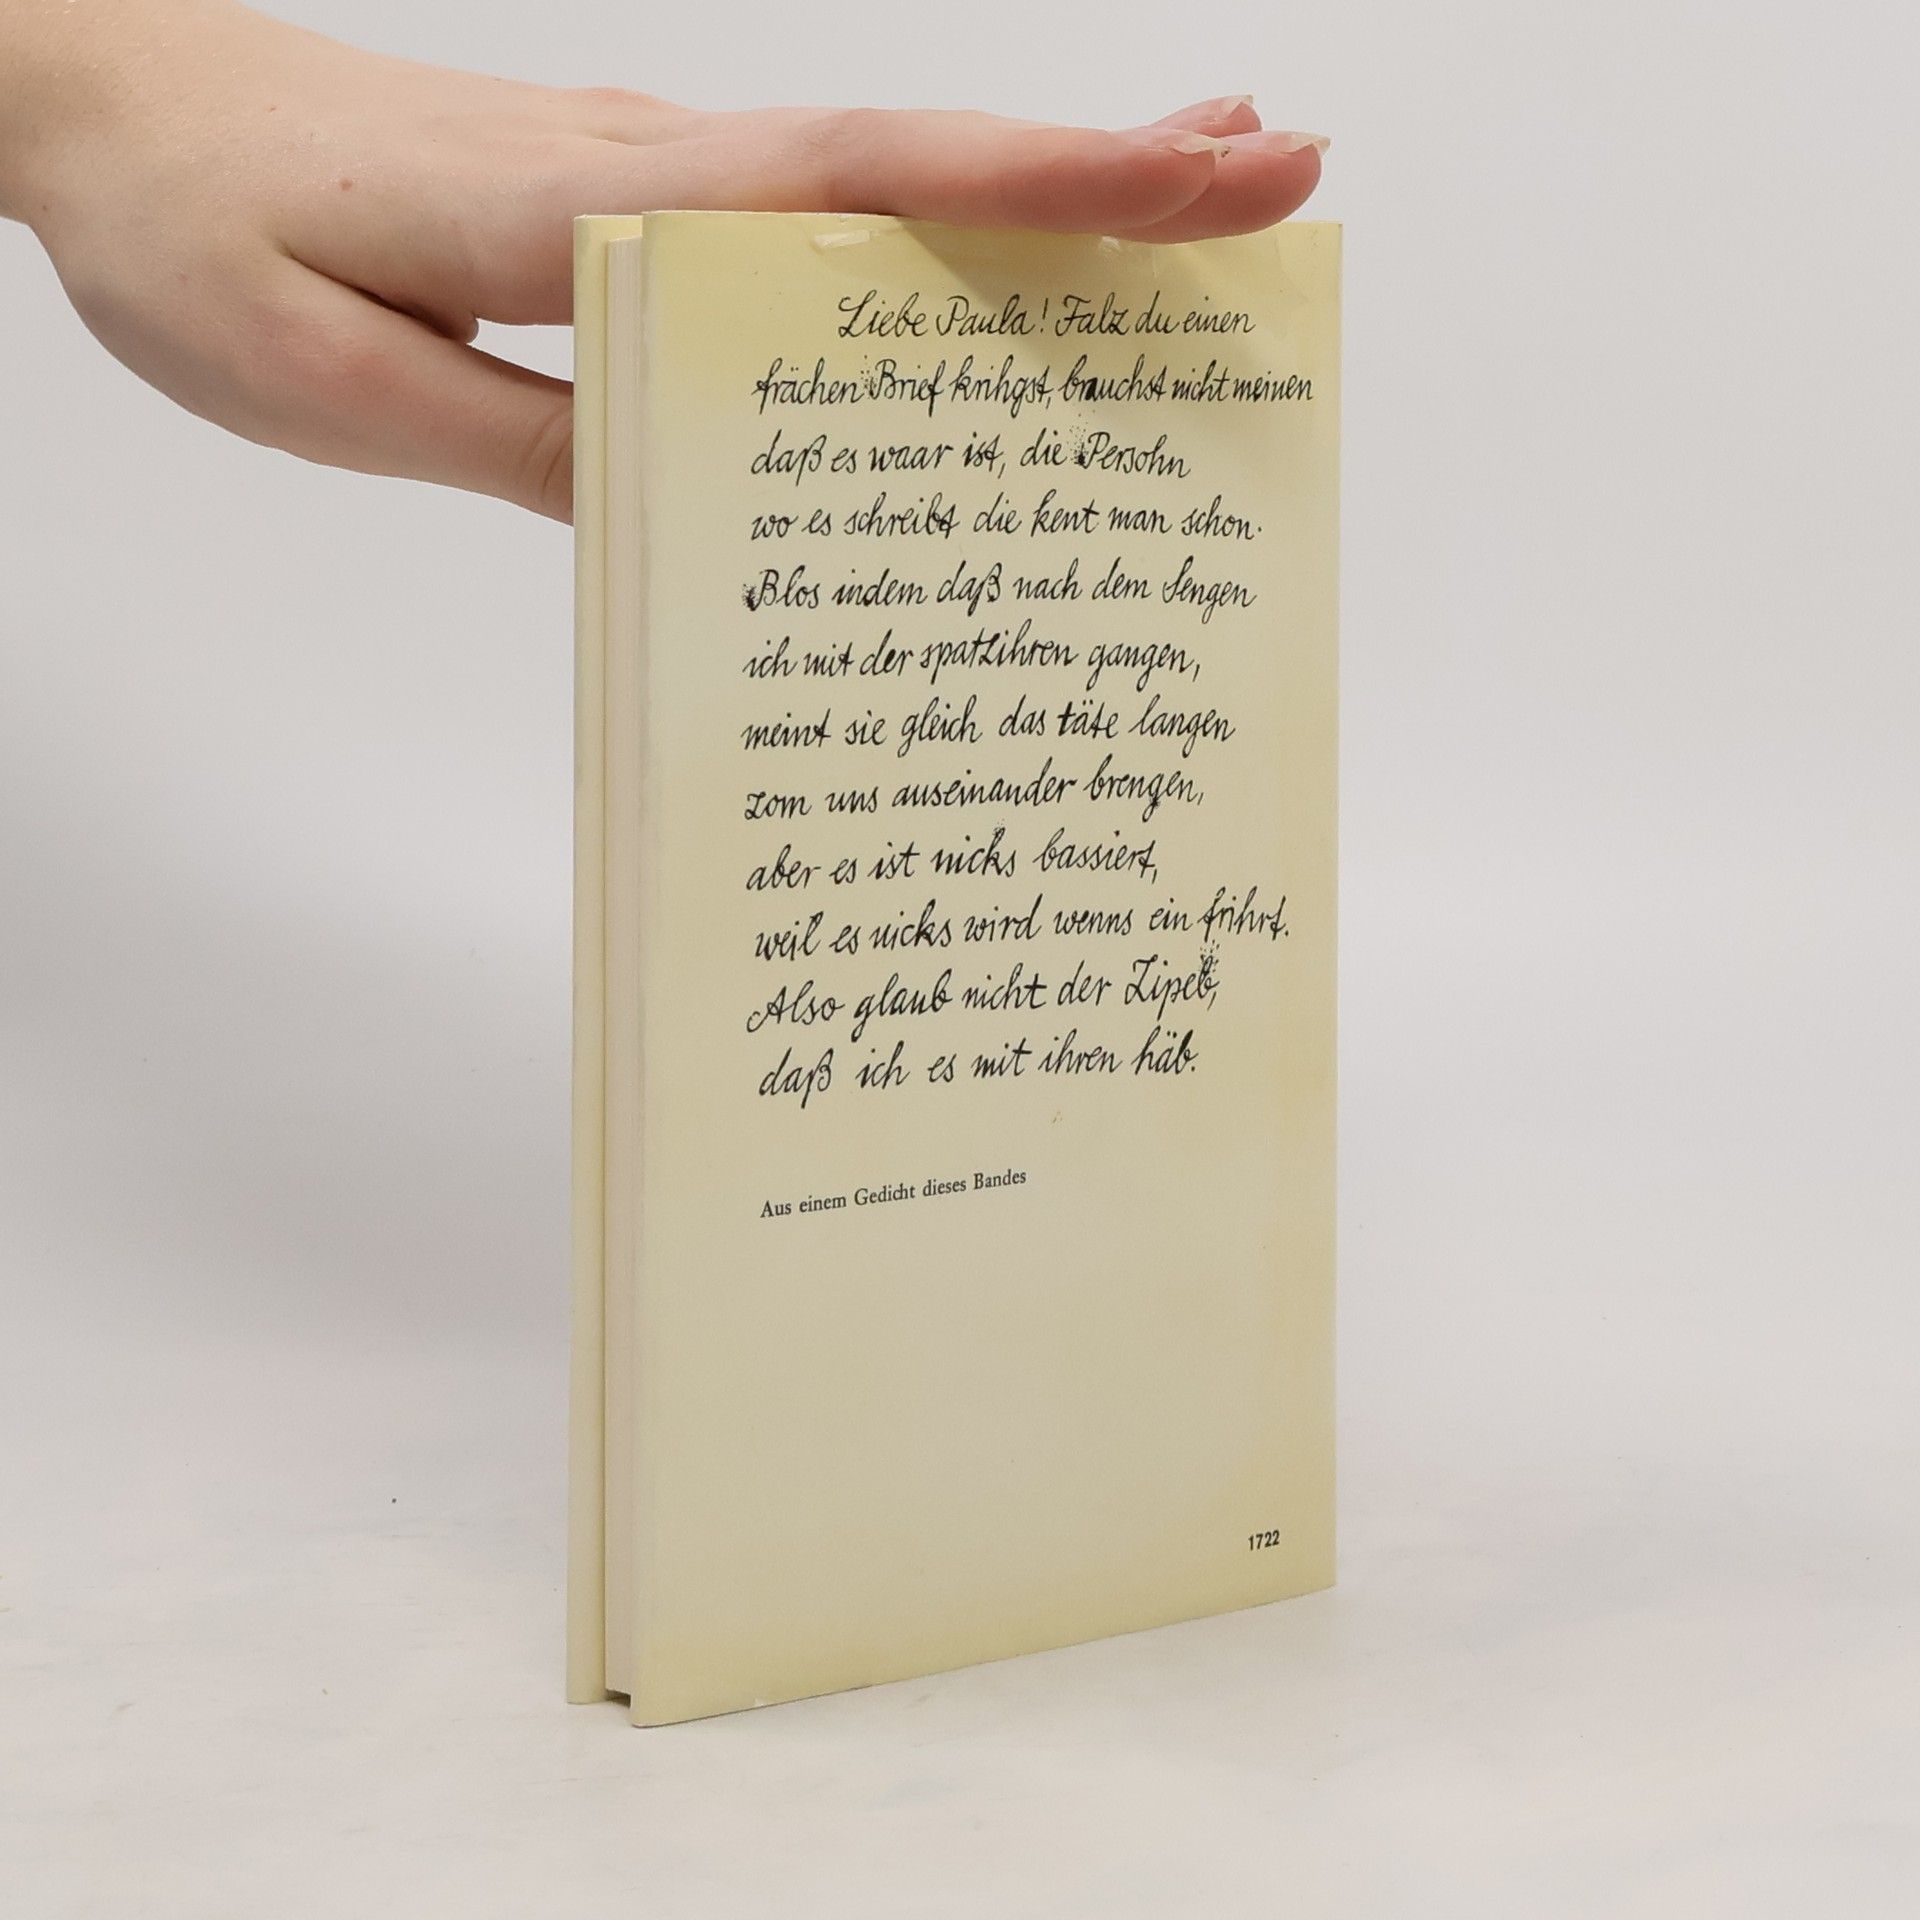 Liebe Paula! Falz du einen
frächen Brief krihgst, brauchst nicht meinen
daß es waar ist, die Persohn
wo es schreibt die kent man schon.
Blos indem daß nach dem Sengen
ich mit der spatzihren gangen,
meint sie gleich das täte langen
zom uns auseinander brengen,
aber es ist nicks bassiert,
weil es nicks wird wenns ein frihrt.
Also glaub nicht der Zipeb,
daß ich es mit ihren häb.
Aus einem Gedicht dieses Bandes
1722